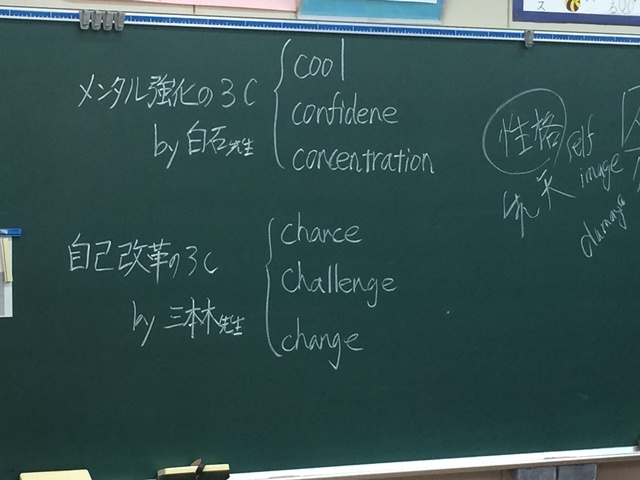 メンタル強化の3C
by 白石先生
cool
confidene
concentration
自己改革の3C
by 三本木先生
chance
challenge
change
性格
self
image
damage